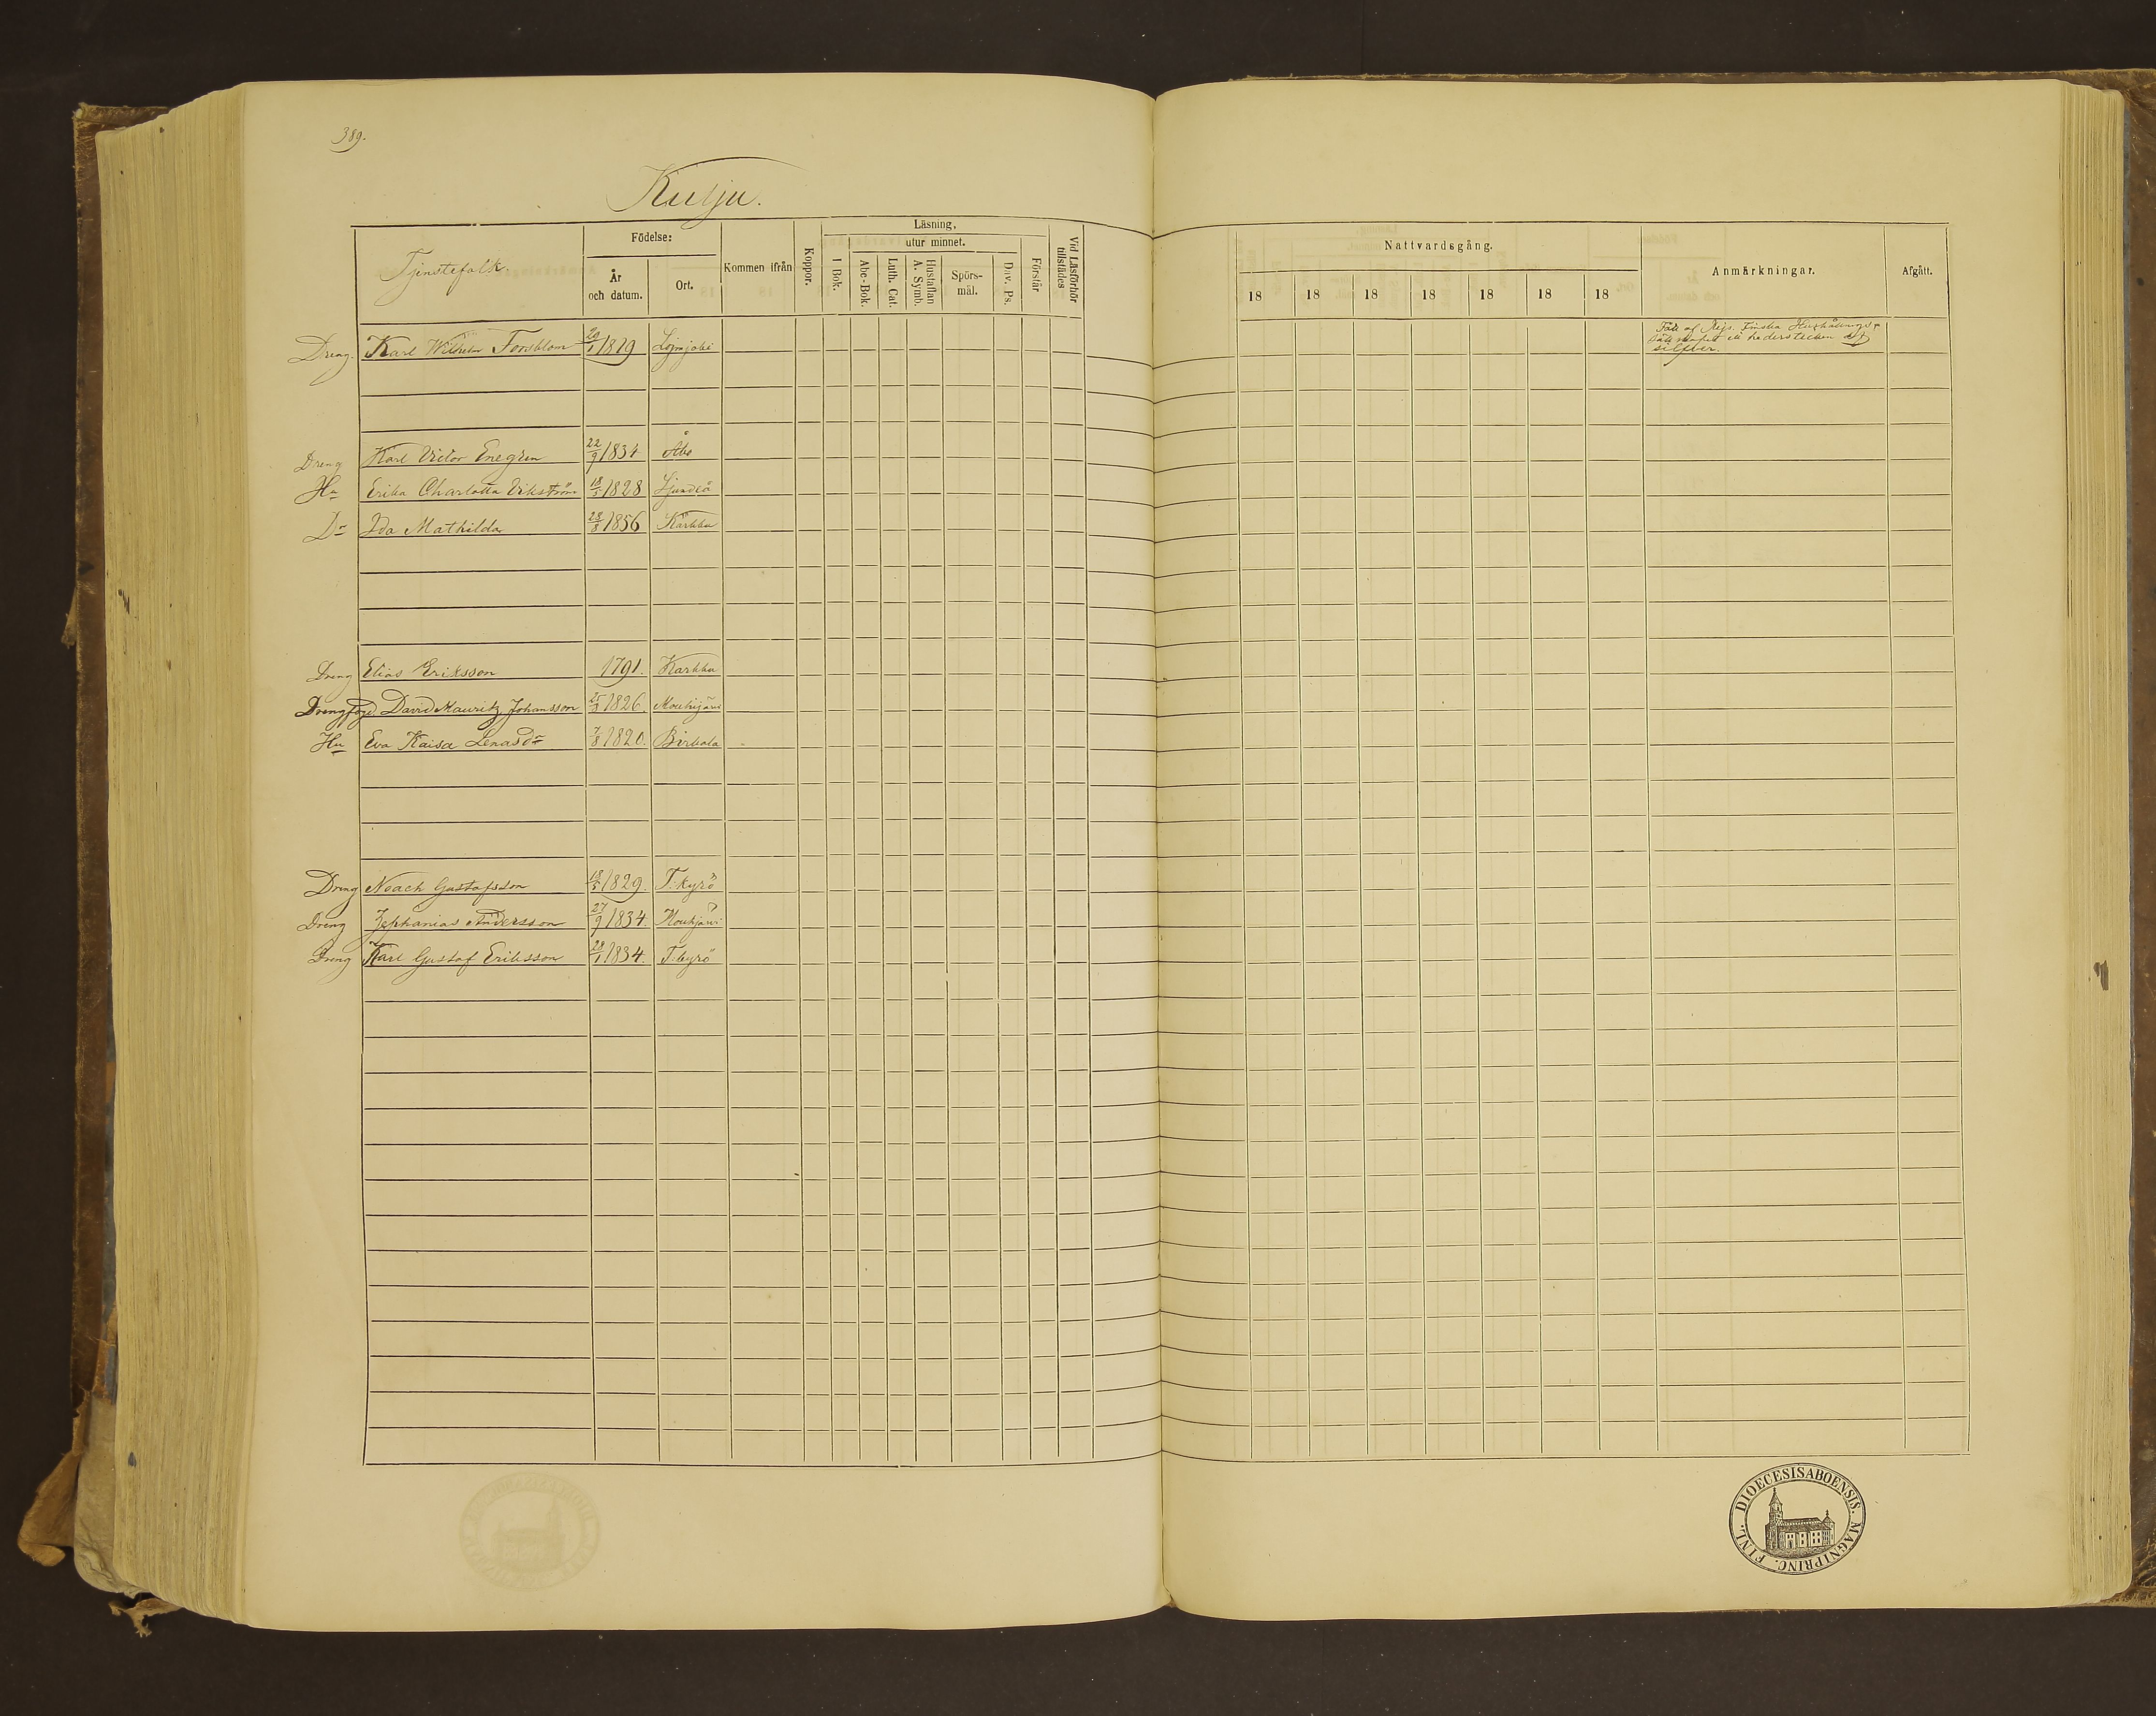 389.
Kulju.
Tjenstefolk.
Födelse:
År och datum.
Ort.
Kommen ifrån
Koppor.
Läsning,
utur minnet.
I Bok.
Abc-Bok.
Luth. Cat.
Hustaflan A. Symb.
Spörs-mål.
Dav. Ps.
Förstår
Vid Läsförhör tillstädes
Nattvardsgång.
18 18 18 18 18 18 18
Anmärkningar.
Afgått.
Dreng. Karl Wilhelm Forsblom 20/1 1819 Loimjoki
Fått af Kejs. Finska Hushållnings-
Sällskapet ett hederstecken af
silfver.
Dreng Karl Victor Enegren 22/9 1834 Åbo
Hu Erika Charlotta Vikström 18/5 1828 Sjundeå
Dr Ida Mathilda 23/8 1856 Karkku
Dreng Elias Eriksson 1791. Karkku
Drengfogd. David Mauritz Johansson 25/3 1826. Mouhijärvi
Hu Eva Kaisa Lenasdr 7/8 1820. Birkala
Dreng Noach Gustafsson 18/5 1829. T:kyrö
Dreng Zephanias Andersson 27/9 1834. Mouhijärvi
Dreng Karl Gustaf Eriksson 28/1 1834. T:kyrö
DIOECESIS ABOENSIS. MAGNI PRINC. FINL.